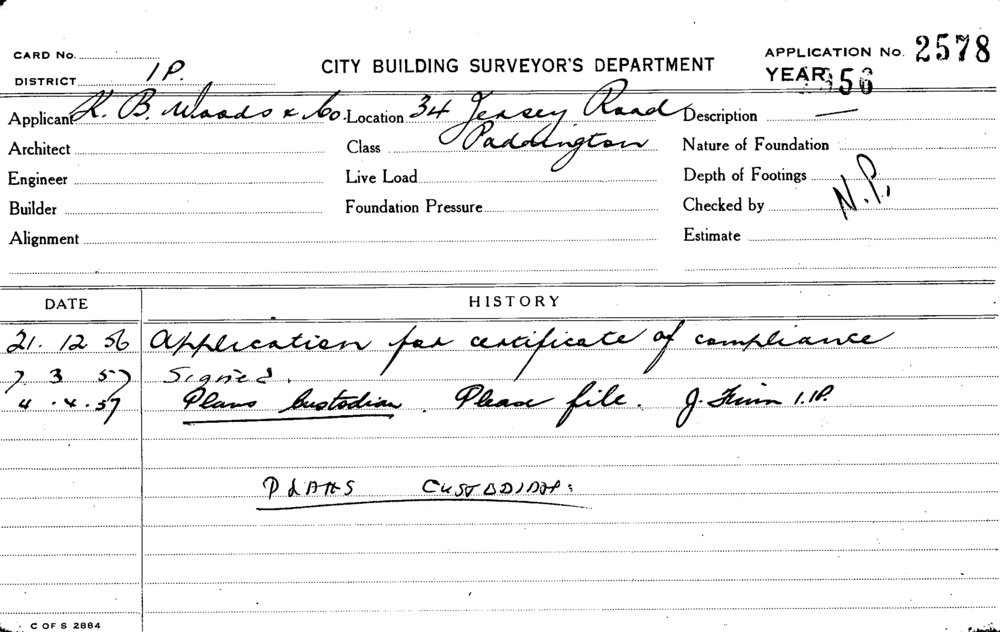 CARD No.
DISTRICT 1P.
CITY BUILDING SURVEYOR'S DEPARTMENT
APPLICATION No. 2578
YEAR 56
Applicant K. B. Woods & Co. Location 34 Jersey Road Description —
Architect Class Paddington Nature of Foundation
Engineer Live Load Depth of Footings
Builder Foundation Pressure Checked by N.P.
Alignment Estimate
DATE HISTORY
21. 12 56 Application for certificate of compliance
7 3 57 Signed.
4 . 4. 57 Plans Custodian. Please file. J. 1.P.
PLANS CUSTODIAN:
C OF S 2884